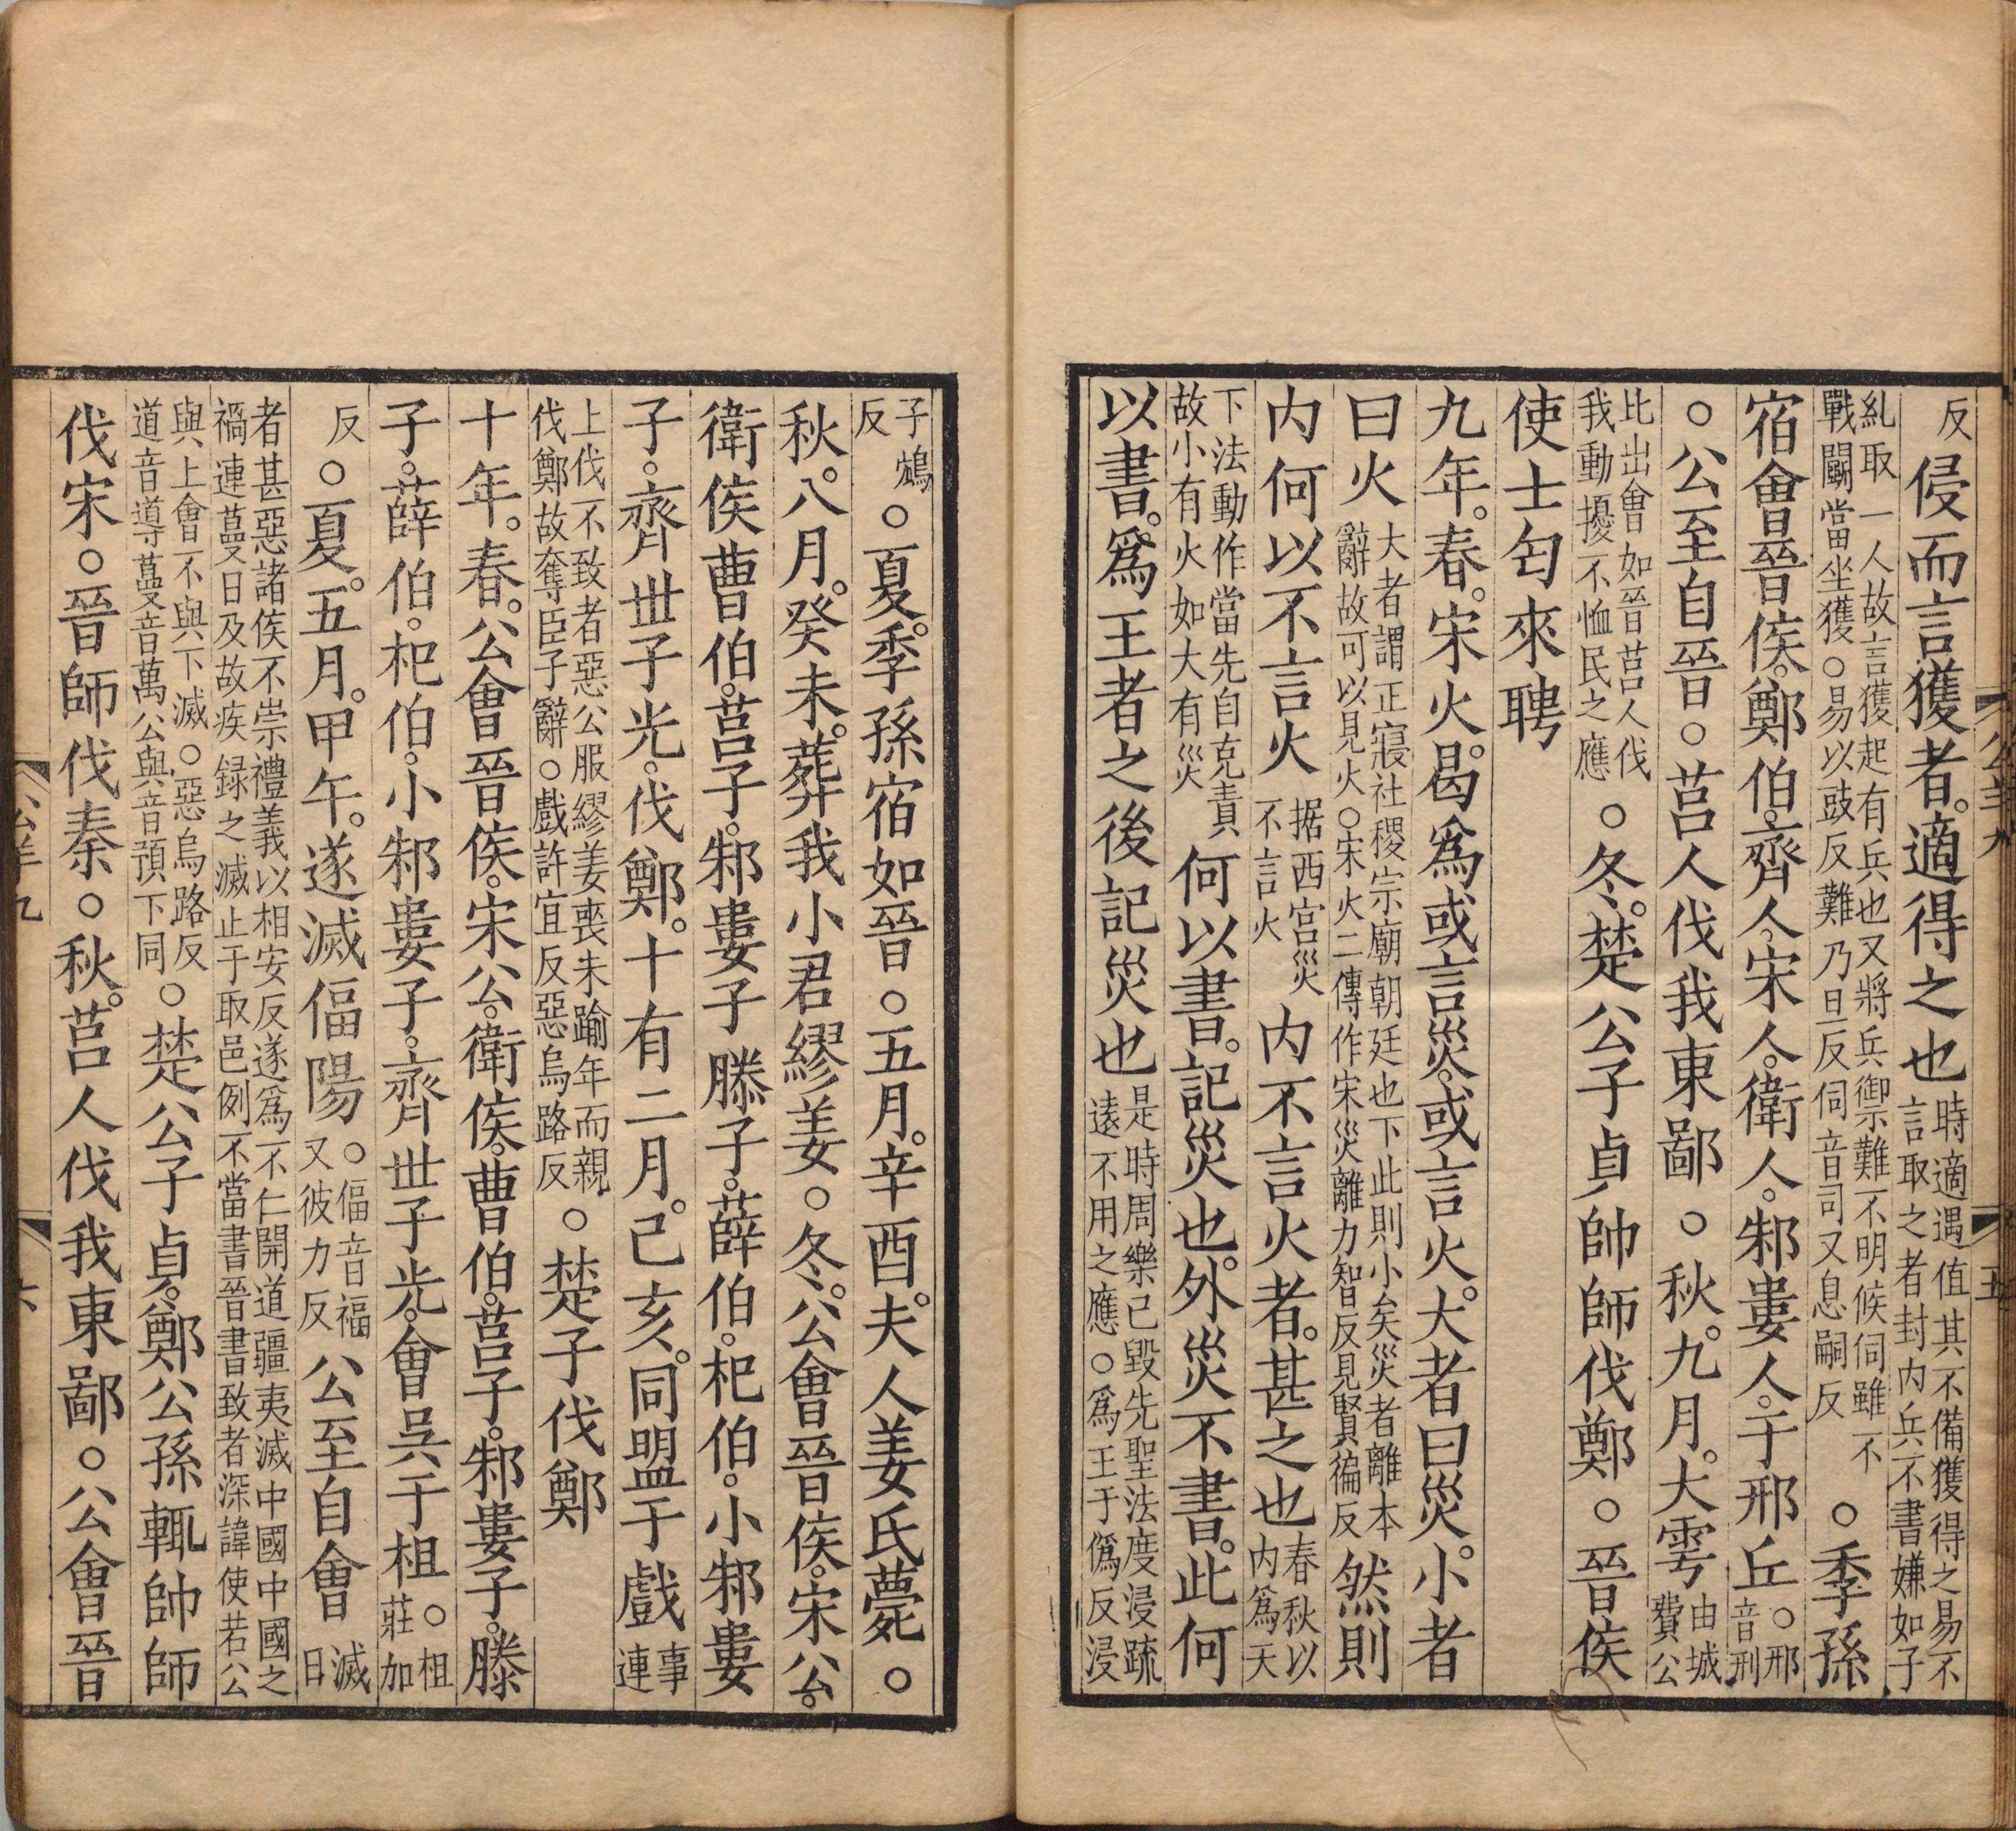 反侵而言獲者。適得之也時適遇值其不備獲得之易不言取之者封内兵不書嫌如子
糺取一人故言獲起有兵也又將兵禦難不明候伺雖不戰鬬當坐獲○易以豉反難乃旦反伺音司又息嗣反○季孫
宿會晉侯。鄭伯。齊人。宋人。衛人。邾婁人。于邢丘。○邢音刑
○公至自晉○莒人伐我東鄙○秋。九月。大雩由城費公
比出會如晉莒人伐我動擾不恤民之應○冬。楚公子貞帥師伐鄭○晉侯
使士匄來聘
九年。春。宋火。曷爲或言災。或言火。大者曰災。小者
曰火大者謂正寢社稷宗廟朝廷也下此則小矣災者離本辭故可以見火○宋火二傳作宋災離力智反見賢徧反然則
内何以不言火据西宮災不言火内不言火者。甚之也春秋以内爲天
下法動作當先自克責故小有火如大有災何以書。記災也。外災不書。此何
以書。爲王者之後記災也是時周樂已毀先聖法度浸疏遠不用之應○爲王于僞反浸
子鴆反○夏。季孫宿如晉○五月。辛酉。夫人姜氏薨○
秋。八月。癸未。葬我小君繆姜○冬。公會晉侯。宋公。
衛侯曹伯。莒子。邾婁子滕子。薛伯。杞伯。小邾婁
子。齊世子光。伐鄭。十有二月。己亥。同盟于戲事連
上伐不致者惡公服繆姜喪未踰年而親伐鄭故奪臣子辭○戲許宜反惡烏路反○楚子伐鄭
十年。春。公會晉侯。宋公。衛侯。曹伯。莒子。邾婁子。滕
子。薛伯。杞伯。小邾婁子。齊世子光。會吳于柤○柤莊加
反○夏。五月。甲午。遂滅偪陽○偪音福又彼力反公至自會滅日
者甚惡諸侯不崇禮義以相安反遂爲不仁開道彊夷滅中國中國之禍連蔓日及故疾録之滅止于取邑例不當書晉書致者深諱使若公
與上會不與下滅○惡烏路反道音導蔓音萬公與音預下同○楚公子貞。鄭公孫輒帥師
伐宋○晉師伐秦○秋。莒人伐我東鄙○公會晉
公羊九
五
公羊九
六